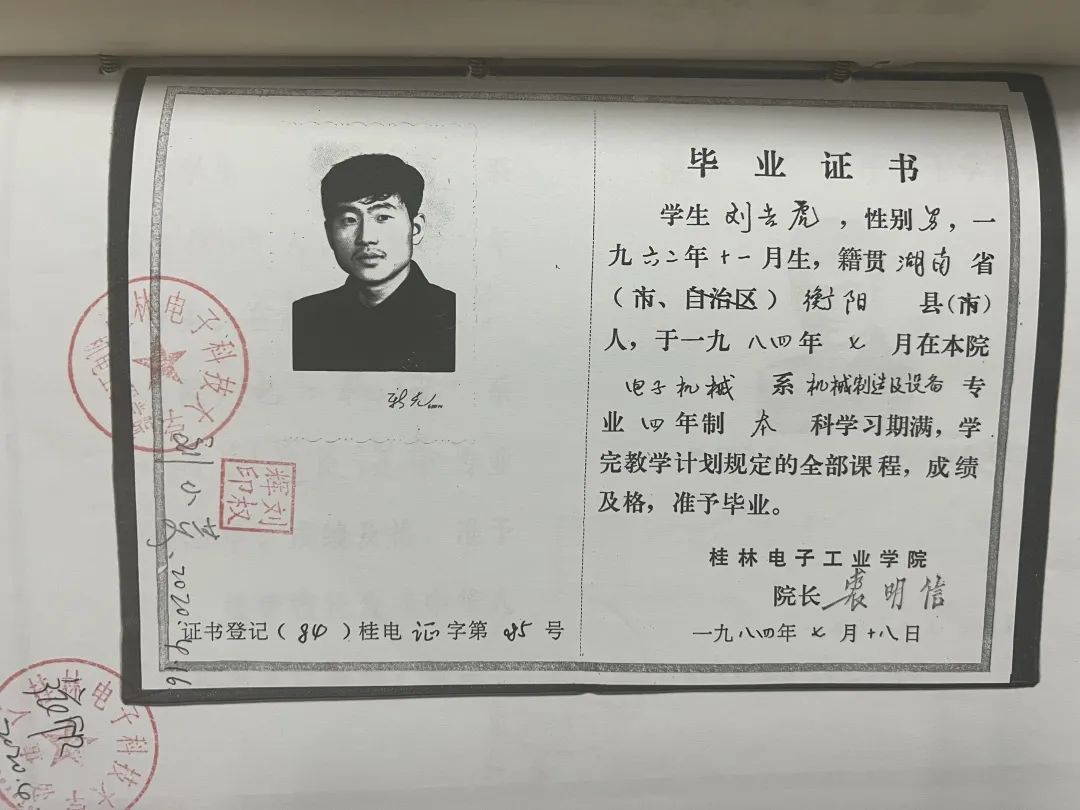 毕业证书
学生 刘吉虎，性别男，一
九六二年十一月生，籍贯湖南省
（市、自治区）衡阳 县（市）
人，于一九八四年 七 月在本院
电子机械 系 机械制造及设备 专
业 四 年制 本 科学习期满，学
完教学计划规定的全部课程，成绩
及格，准予毕业。
桂林电子工业学院
院长
一九八四年 七 月 十八日
证书登记（84）桂电 证 字第 85 号
林电子科技大学
刘辉权印
2020.4.16
电子科技大学